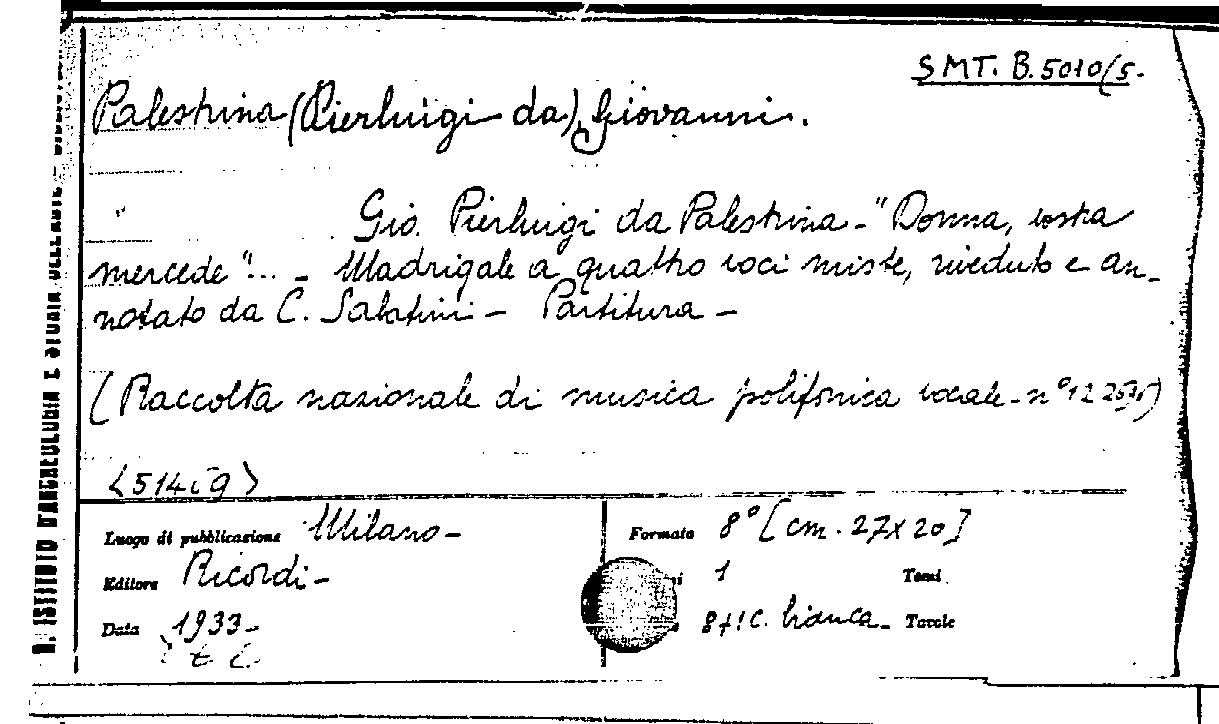 SMT. B.5010/5.
Palestrina (Pierluigi da) Giovanni.
Gio. Pierluigi da Palestrina - "Donna, vostra
mercede"... - Madrigale a quattro voci miste, riveduto e an-
notato da C. Sabatini - Partitura -
(Raccolta nazionale di musica polifonica vocale - n°
<514 i 9>
Luogo di pubblicazione Milano -
Formato 8° [cm. 27x20]
Editore Ricordi -
1 Tomi
Data 1933 -
8+1c. bianca - Tavole
R. ISTITUTO D'ARCHEOLOGIA E STORIA DELL'ARTE -